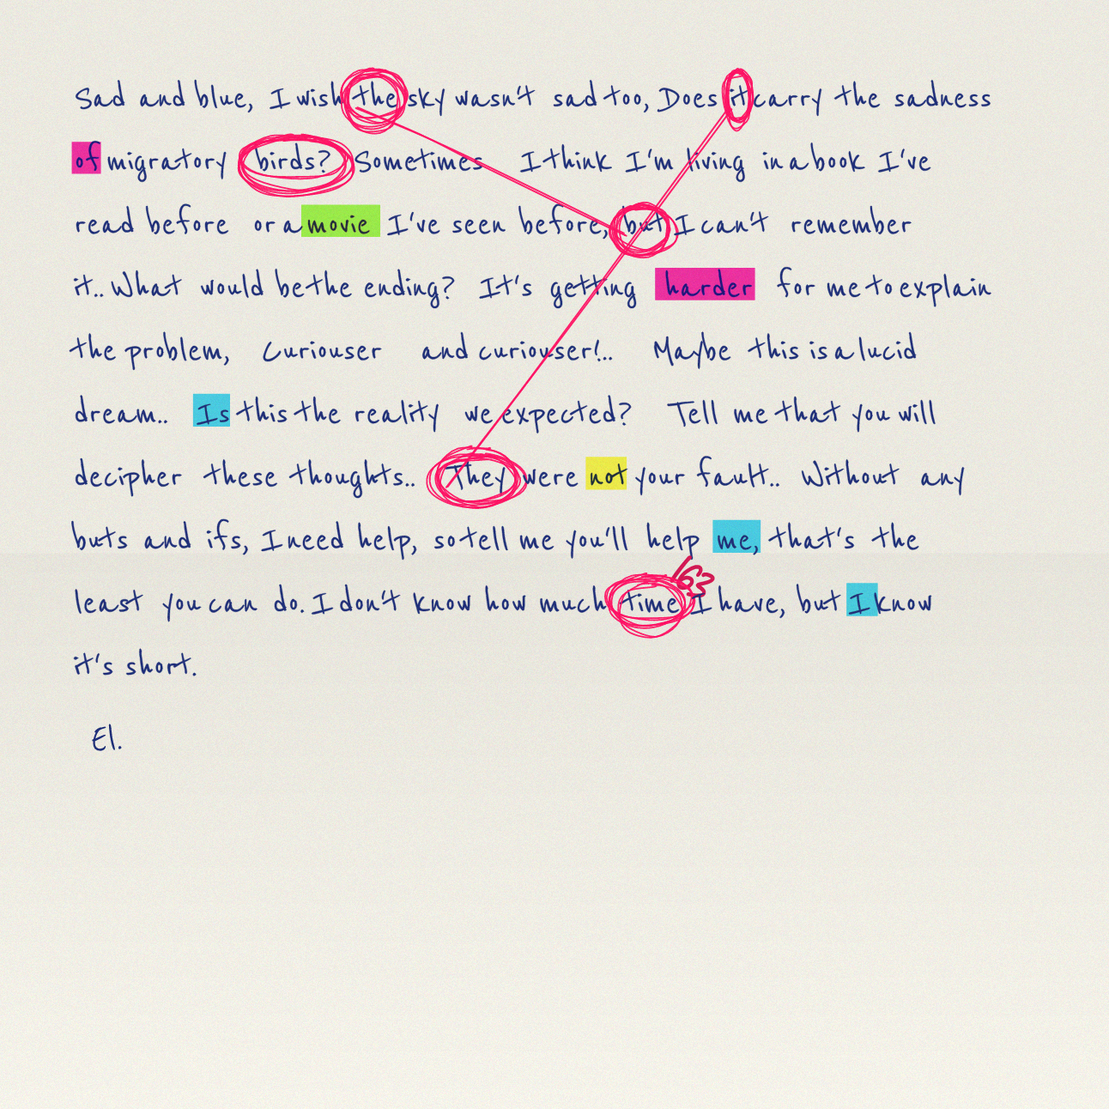 Sad and blue, I wish the sky wasn't sad too, Does it carry the sadness
of migratory birds? Sometimes I think I'm living in a book I've
read before or a movie I've seen before, but I can't remember
it.. What would be the ending? It's getting harder for me to explain
the problem, Curiouser and curiouser!.. Maybe this is a lucid
dream.. Is this the reality we expected? Tell me that you will
decipher these thoughts.. They were not your fault.. Without any
buts and ifs, I need help, so tell me you'll help me, that's the
least you can do. I don't know how much time I have, but I know
it's short.
El.